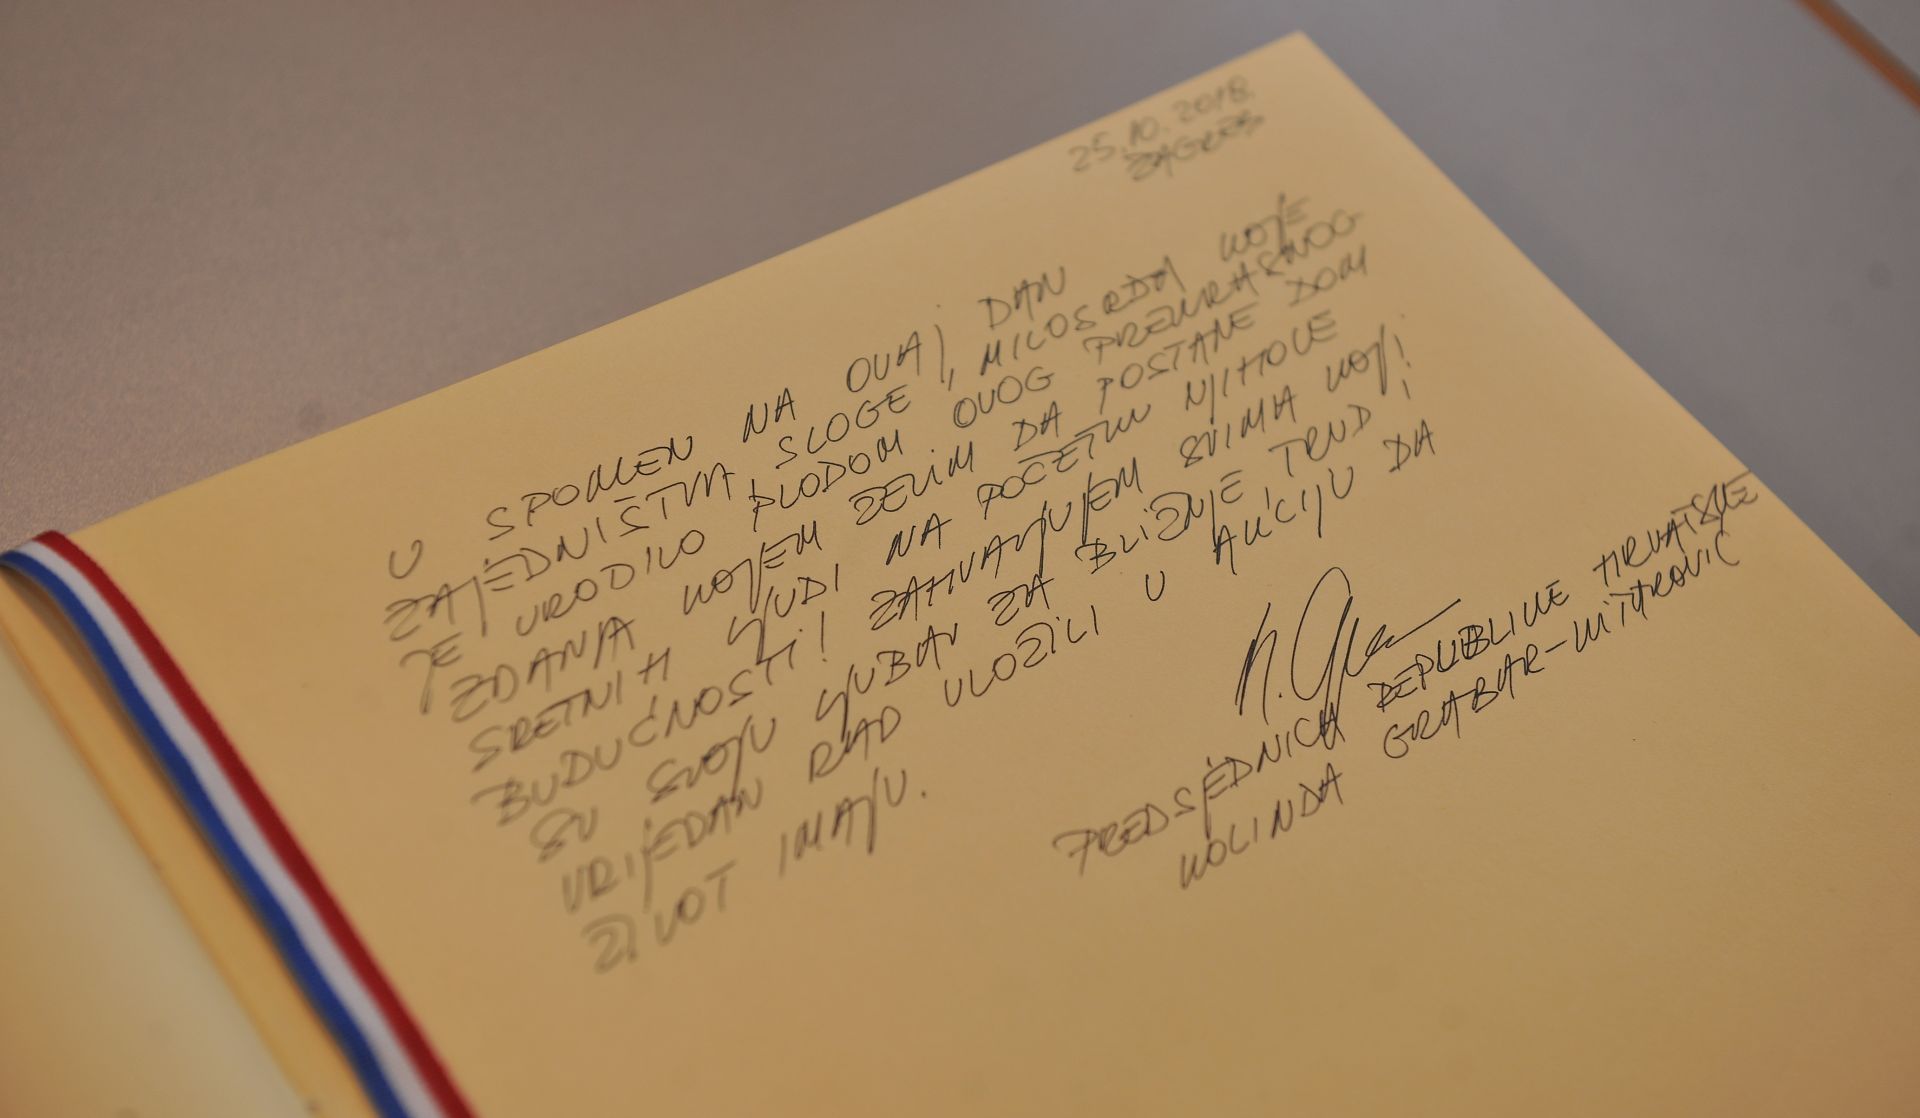 25.10.2018.
ZAGREB
U SPOMEN NA OVAJ DAN
ZAJEDNIŠTVA SLOGE, MILOSRĐA KOJE
JE URODILO PLODOM OVOG PREKRASNOG
ZDANJA KOJEM ŽELIM DA POSTANE DOM
SRETNIH LJUDI NA POČETKU NJIHOVE
BUDUĆNOSTI! ZAHVALJUJEM SVIMA KOJI
SU SVOJU LJUBAV ZA BLIŽNJE TRUD I
VRIJEDAN RAD ULOŽILI U AKCIJU DA
ŽIVOT IMAJU.
PREDSJEDNICA REPUBLIKE HRVATSKE
KOLINDA GRABAR-KITAROVIĆ